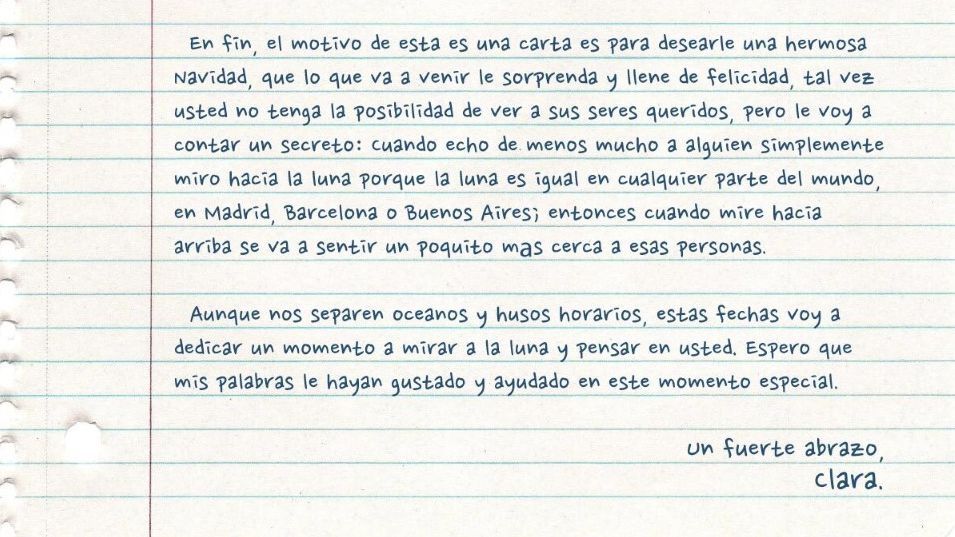 En fin, el motivo de esta es una carta es para desearle una hermosa
Navidad, que lo que va a venir le sorprenda y llene de felicidad, tal vez
usted no tenga la posibilidad de ver a sus seres queridos, pero le voy a
contar un secreto: cuando echo de menos mucho a alguien simplemente
miro hacia la luna porque la luna es igual en cualquier parte del mundo,
en Madrid, Barcelona o Buenos Aires; entonces cuando mire hacia
arriba se va a sentir un poquito mas cerca a esas personas.
Aunque nos separen oceanos y husos horarios, estas fechas voy a
dedicar un momento a mirar a la luna y pensar en usted. Espero que
mis palabras le hayan gustado y ayudado en este momento especial.
un fuerte abrazo,
clara.